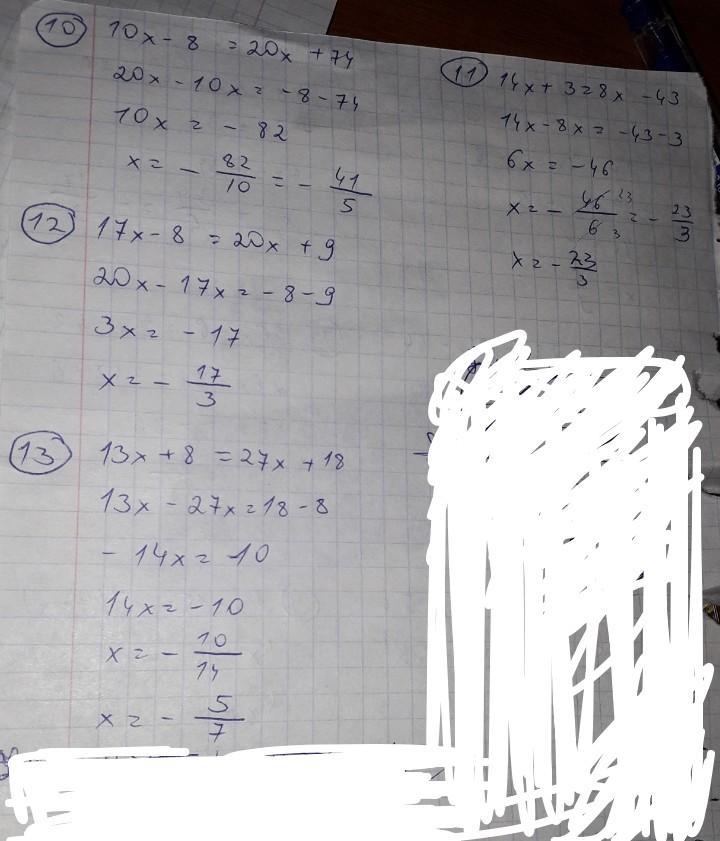 10
10x - 8 = 20x + 74
20x - 10x = -8 - 74
10x = - 82
x = - 82/10 = - 41/5
11
14x + 3 = 8x - 43
14x - 8x = -43 - 3
6x = -46
x = - 46/6 23 3 = - 23/3
x = - 23/3
12
17x - 8 = 20x + 9
20x - 17x = - 8 - 9
3x = - 17
x = - 17/3
13
13x + 8 = 27x + 18
13x - 27x = 18 - 8
- 14x = 10
14x = - 10
x = - 10/14
x = - 5/7